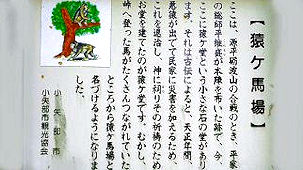 【猿ケ馬場】
ここは、源平砺波山の合戦のとき、平家
の総師平維盛が本陣を布いた跡で、今、
ここに猿ケ堂という小さな石の堂があり
ます。それは古伝によると、天正年間、
悪猿が出てて民家に災害を加えるため、
これを退治し、神に祠りその祈祷のため
お堂を建てたのが猿ケ堂です。むかし、
峠へ登った馬がたくさんつながれていた
ところから猿ケ馬場と
名づけるようになりま
した。
小矢部市
小矢部市観光協会